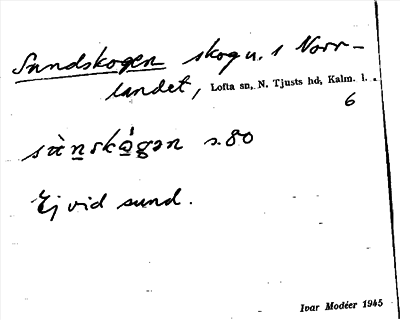 Sundskogen skog u. i Norr-
landet, Lofta sn, N. Tjusts hd, Kalm. l.
6
s.80
Ej vid sund.
Ivar Modéer 1945